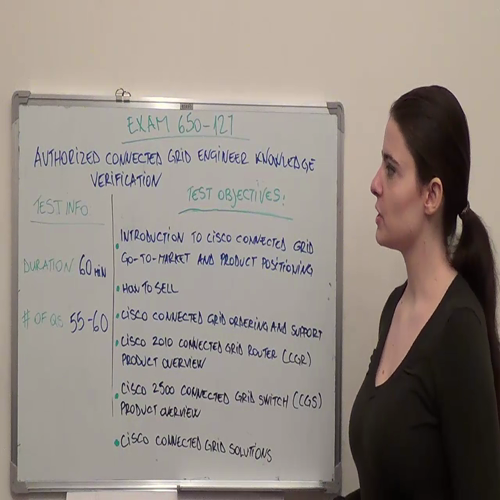 EXAM 650-127
AUTHORIZED CONNECTED GRID ENGINEER KNOWLEDGE
VERIFICATION
TEST INFO
DURATION 60 MIN
# OF QS 55-60
TEST OBJECTIVES:
• INTRODUCTION TO CISCO CONNECTED GRID
GO-TO-MARKET AND PRODUCT POSITIONING
• HOW TO SELL
• CISCO CONNECTED GRID ORDERING AND SUPPORT
• CISCO 2010 CONNECTED GRID ROUTER (CGR)
PRODUCT OVERVIEW
• CISCO 2500 CONNECTED GRID SWITCH (CGS)
PRODUCT OVERVIEW
• CISCO CONNECTED GRID SOLUTIONS